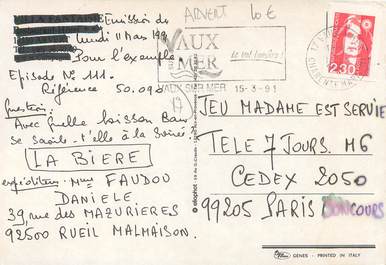 ADVENT 10 €
Emission du
lundi 11 Mars 1991
Pour l'exemple
Episode No 111.
Référence 50.092
Question:
Avec quelle boisson Bau
se saoule-t'elle à la soirée.
LA BIERE
expéditeur: Mme FAUDOU
DANIELE
39, rue des MAZURIERES
92500 RUEIL MALMAISON.
VAUX
MER
VAUX SUR MER 15-3-91
17
2,30
JEU MADAME EST SERVIE
TELE 7 JOURS. M6
CEDEX 2050
99205 PARIS CONCOURS
GENES - PRINTED IN ITALY